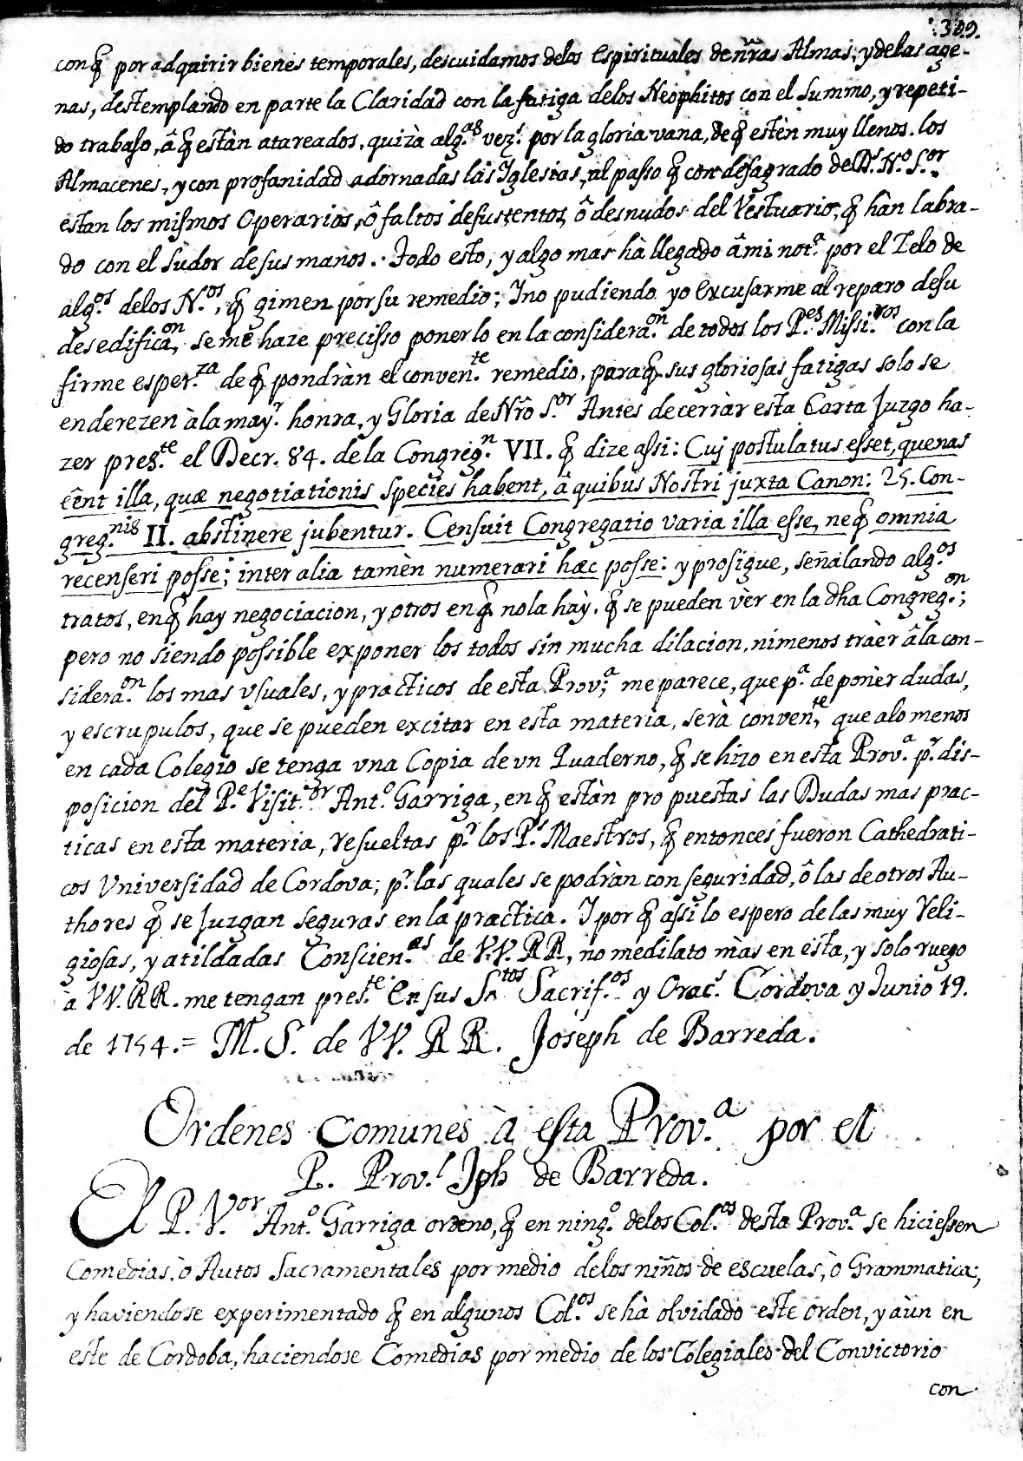 :309.
conq̃ por adquirir bienes temporales, descuidamos delos Espirituales de nr̃as Almas; y delas age-
nas, destemplando en parte la Claridad con la fatiga delos Neophitos con el summo, y repeti-
do trabajo, â q̃ estàn atareados, quiza alg.as vez.s por la gloria vana, de q̃ estèn muy llenos los
Almacenes, y con profanidad adornadas las Yglesias, al passo q̃ con desagrado de D.s N.o S.or
estan los mismos Operarios, ô faltos desustentos, ô desnudos del Vestuario, q̃ hàn labra-
do con el sudor de sus manos. Todo esto, y algo mas hà llegado â mi not.a por el Zelo de
alg.os delos N.os, q̃ gimen por su remedio; Y no pudiendo yo Excusarme al reparo desu
desedifica.on, se me haze precisso ponerlo en la considera.on de todos los P.es Missi.ros con la
firme esper.za de q̃ pondràn el conven.te remedio, paraq̃ sus gloriosas fatigas solo se
enderezen à la may.r honra, y Gloria de Nr̃o S.or Antes de cerràr esta Carta Juzgo ha-
zer pres.te el Decr. 84. de la Congreg.n VII. q̃ dize assi: Cuj postulatus esset, quenas
eẽnt illa, quæ negotiationis species habent, â quibus Nostri juxta Canon: 25. Con-
greg.nis II. abstinere jubentur. Censuit Congregatio varia illa esse, neq̃ omnia
recenseri posse; inter alia tamèn numerari hæc posse: y prosigue, señalando alg.os
tratos, enq̃ hay negociacion, y otros enq̃ no la hày. q̃ se pueden vèr en la dha Congreg.on;
pero no siendo possible exponer los todos sin mucha dilacion, ni menos tràer â la con-
sidera.on los mas vsuales, y practicos de esta Prov.a; me parece, que p.a deponèr dudas,
y escrupulos, que se pueden excitar en esta materia, serà conven.te, que alo menos
en cada Colegio se tenga vna Copia de vn Quaderno, q̃ se hizo en esta Prov.a p.r dis-
posicion del P.e Visit.or Ant.o Garriga, en q̃ estàn propuestas las Dudas mas prac-
ticas en esta materia, resueltas p.r los P.s Maestros, q̃ entonces fueron Cathedrati-
cos Universidad de Cordova; p.r las quales se podràn con seguridad, ô las de otros Au-
thores q̃ se Juzgan seguras en la practica. Y por q̃ assi lo espero de las muy Reli-
giosas, y atildadas Conscien.as de VV. RR, no me dilato màs en esta, y solo ruego
à VV. RR. me tengan pres.te En sus S.tos Sacrif.os y Orac.s Cordova y Junio 19.
de 1754.= M. S. de VV. RR. Joseph de Barreda.
Ordenes Comunes à esta Prov.a por el
P. Prov.l Jph de Barreda.
El P. V.or Ant.o Garriga ordeno, q̃ en ning.o delos Col.os desta Prov.a se hiciessen
Comedias, ò Autos Sacramentales por medio delos niños de escuelas, ò Grammatica;
y haviendose experimentado q̃ en algunos Col.os se hà olvidado este orden, y aùn en
este de Cordoba, haciendose Comedias por medio de los Colegiales del Convictorio
con